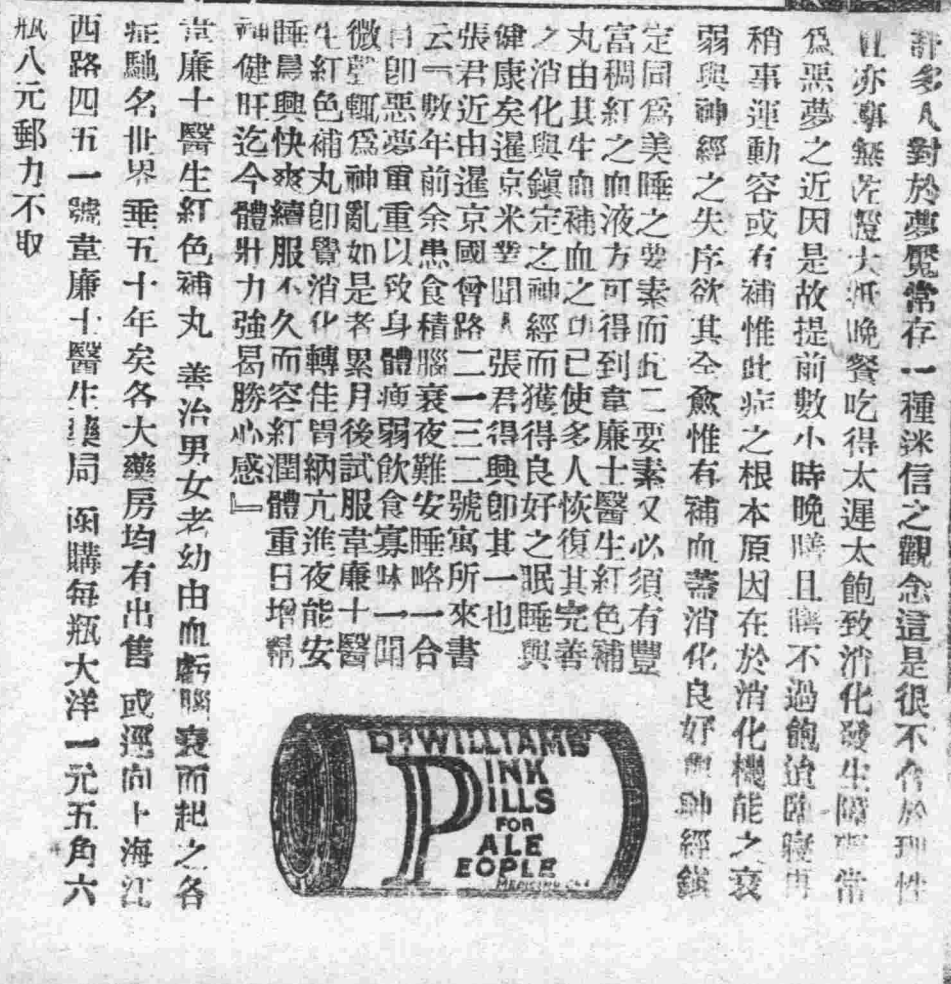 許多人對於夢魘常存一種迷信之觀念這是很不合於理性
且亦專無左證大抵晚餐吃得太遲太飽致消化發生障礙常
爲惡夢之近因是故提前數小時晚膳且膳不過飽迨臨寢再
稍事運動容或有補惟此症之根本原因在於消化機能之衰
弱與神經之失序欲其全愈惟有補血蓋消化良好與神經鎮
定同爲美睡之要素而此二要素又必須有豐
富稠紅之血液方可得到韋廉士醫生紅色補
丸由其生血補血之功已使多人恢復其完善
之消化與鎮定之神經而獲得良好之眠睡與
健康矣暹京米業聞人張君得興卽其一也
張君近由暹京國曾路二一三二號寓所來書
云『數年前余患食積腦衰夜難安睡略一合
目卽惡夢重重以致身體瘦弱飲食寡味一聞
微聲輒爲神亂如是者累月後試服韋廉士醫
生紅色補丸卽覺消化轉佳胃納亢進夜能安
睡晨興快爽續服不久而容紅潤體重日增精
神健旺迄今體壯力強曷勝心感』
韋廉士醫生紅色補丸 善治男女老幼由血虧腦衰而起之各
症馳名世界垂五十年矣各大藥房均有出售 或逕向上海江
西路四五一號韋廉士醫生藥局 函購每瓶大洋一元五角六
瓶八元郵力不取
DR WILLIAMS'
PINK
PILLS
FOR
PALE
PEOPLE